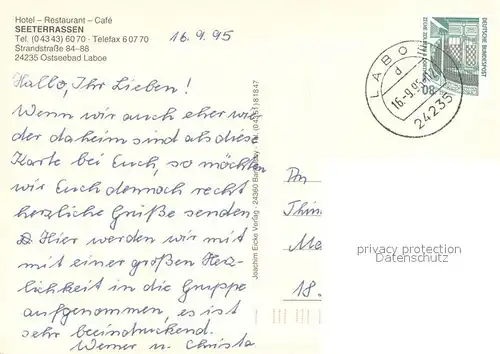 Hotel – Restaurant – Café
SEETERRASSEN
Tel. (0 43 43) 60 70 · Telefax 6 07 70
Strandstraße 84–88
24235 Ostseebad Laboe
16.9.95
Hallo, Ihr Lieben!
Wenn wir auch eher wie-
der daheim sind als diese
Karte bei Euch, so möchten
wir Euch dennoch recht
herzliche Grüße senden
Hier werden wir mit
mit einer großen Herz-
lichkeit in die Gruppe
aufgenommen, es ist
sehr beeindruckend.
Werner u. Christa
Joachim Eicke Verlag - 24360 Tel. 81847
LABOE
d
16.-9.95
24235
DEUTSCHE BUNDESPOST
80
An
Thin
Ma
18.
privacy protection
Datenschutz